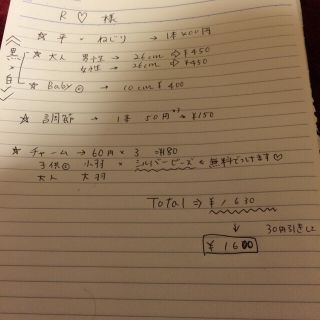 R ♡ 様
☆ 平 × ねじり → 1本 ¥00円
黒 × 白
☆ 大人 男性 → 26cm ⇨ ¥450
女性 → 26cm ⇨ ¥450
☆ Baby → 10cm ¥400
☆ 調節 → 1本 50円 ×3 → ¥150
☆ チャーム → 60円 × 3 ⇨ ¥180
子供 小羽 × シルバービーズ を 無料でつけます♡
大人 大羽
Total ⇨ ¥1630
↓ 30円引きして
¥1600